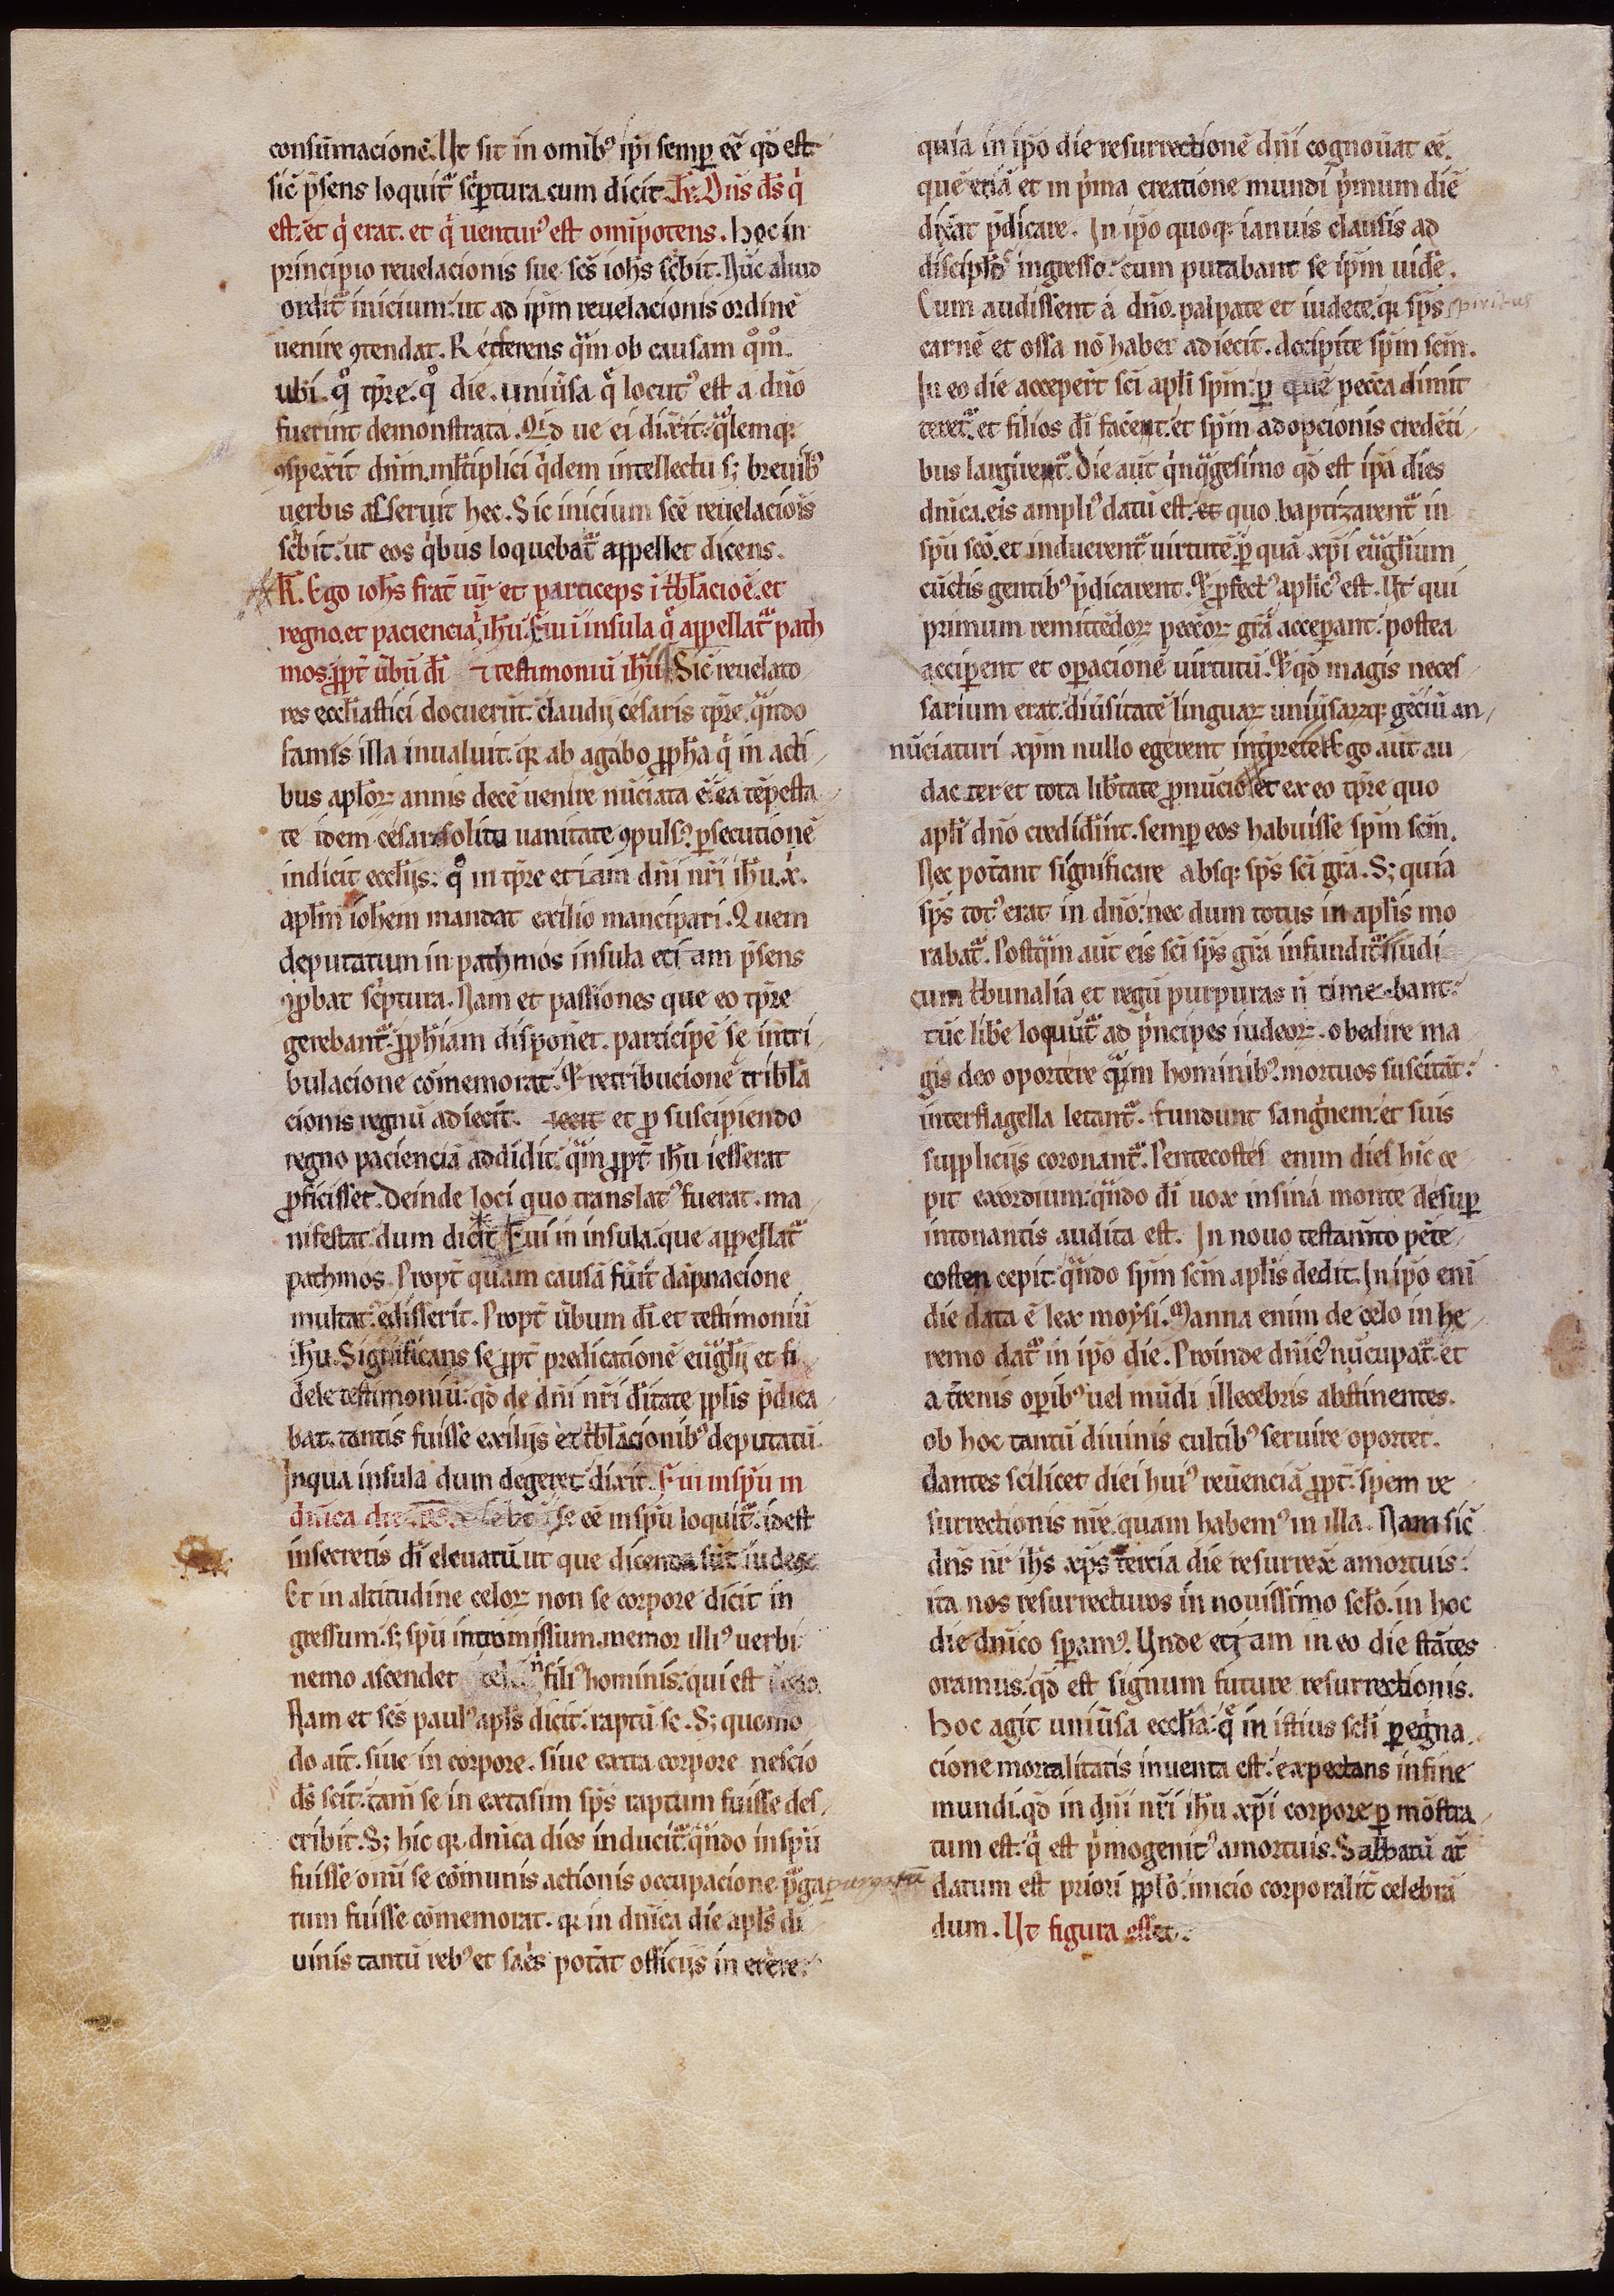 consūmacionē. Ut sit in omib᷒ ip̄i semꝑ eē qd̄ est
sic̄ p̄sens loquit᷑ sc̓ptura cum dicit. Dn̄s ds̄ q̓
est. et q̓ erat. et q̓ uentur᷒ est omīpotens. hoc in
principio reuelacionis sue scs̄ ioh̄s sc̓bit. Nūc aliud
ordit᷑ inicium: ut ad ip̄m reuelacionis ordinē
uenire ꝯtendat. Refferens q̄m ob causam qͦm̄.
ubi. qͦ tp̄re. qͦ die. uniūsa q̄ locut᷒ est a dn̄o
fuerint demonstrata. Qͥd ue ei dix̄it. q̄lemqꝫ
ꝯspexit dn̄m. ml̄tiplici q̓dem intellectu sꝫ breuib᷒
uerbis asseruit hec. Sic inicium scē reuelaciōis
sc̓bit. ut eos q̓bus loquebat᷑ appellet dicens.
R̄. Ego ioh̄s frat̄ ur̄ et particeps ī t̓bl̄acioē. et
regno. et paciencia. ih̄u. fui ī insula q̄ appellat᷑ path
mos. ꝓpt̄ ūbū dī ⁊ testimoniū ih̄u. Sic̄ reuelato
res eccl̄iastici docuerūt. claudij cesaris tp̄re. q̄ndo
famis illa inualuit. qꝛ ab agabo ꝓph̄a q̓ in acti
bus aplōꝝ annis decē uenire nūciata ē. ea tēpesta
te idem cesar solita uanitate ꝯpuls᷒. ꝑsecutionē
indicit eccl̄ijs: qͦ in tp̄re etiam dn̄i nr̄i ih̄u. x̄.
apl̄m ioh̄em mandat exilio mancipari. Quem
deputatum in pathmos insula etiam p̄sens
ꝯꝓbat sc̓ptura. Nam et passiones que eo tp̄re
gerebant᷑. ꝓph̄iam disponēt. participē se in tri
bulacione cōmemorat. Et retribucionē tribl̄a
cionis regnū adiecit. iecit et ꝓ suscipiendo
regno pacienciā addidit. q̄m ꝓpt̄ ih̄u iesserat
ꝓficisset. Deinde loci quo translat᷒ fuerat. ma
nifestat. dum dicit fui in insula. que appellat᷑
pathmos. Propt̄ quam causā fūit dāpnacione
multat᷒. edisserit. Propt̄ ūbum dī et testimoniū
ih̄u. Significans se ꝓpt̄ predicationē eūgl̄ij et fi
dele testimoniū: qd̄ de dn̄i nr̄i dītate ppl̄is p̄dica
bat. tantis fuisse exilijs et t̓bl̄acionib᷒ deputatū.
In qua insula dum degeret dixit. Fui in spū in
dn̄ica die. se eē in spū loquit᷑. id est
in secretis dī eleuatū. ut que dicenda sūt
Et in altitudine celoꝝ non se corpore dicit in
gressum. sꝫ spū intromissum. memor illi᷒ uerbi
nemo ascendet fili᷒ hominis: qui est
Nam et scs̄ paul᷒ apl̄s dicit. raptū se. Sꝫ quomo
do ait. siue in corpore. siue extra corpore nescio
ds̄ scit. tam̄ se in extasim sps̄ raptum fuisse des
cribit. Sꝫ hic qꝛ dn̄ica dies inducit᷑. q̄ndo in spū
fuisse om̄i se cōmunis actionis occupacione p᷑ga purgatū
tum fuisse cōmemorat. qꝛ in dn̄ica die apl̄s di
uinis tantū reb᷒ et sac̓s potāt officijs in
quia in ip̄o die resurrectionē dn̄i cognoūat eē.
quē etiā et in p̓ma creatione mundi p̓mum diē
dix̄at p̄dicare. In ip̄o quoqꝫ ianuis clausis ad
discipl̄os ingresso. cum putabant se ip̄m uidē.
Cum audissent a dn̄o. palpate et uidete. qꝛ sps̄ spiritus
carnē et ossa nō habet adiecit. decipite sp̄m scm̄.
In eo die acceper̄t sci apl̄i spm̄: ꝑ quē pecc̄a dimit
teret᷑. et filios dī facēent. et spm̄ adopcionis credēti
bus largirent᷑. Die aūt q̓nq̄gesimo qd̄ est ip̄a dies
dn̄ica. eis ampli᷒ datū est. et quo baptizarent᷑ in
spū scō. et induerent᷑ uirtutē. ꝑ quā xp̄i eūgl̄ium
cūctis gentib᷒ p̄dicarent. Et ꝓfect᷒ aplic᷒ est. Ut qui
primum remittēdoꝝ peccōꝝ grā acceperant. postea
acciperent et operacionē uirtutū. Et qd̄ magis neces
sarium erat. diūsitatē linguaꝝ uniūsaꝝqꝫ genciū an
nūciaturi xp̄m nullo egerent int̓prete. Ergo aūt au
dacter et tota lib̄tate ꝓnūcio. et ex eo tp̄re quo
apl̄i dn̄o credidīnt. semꝑ eos habuisse spm̄ scm̄.
Nec potāant significare absqꝫ sps̄ sci grā. Sꝫ quia
sps̄ tot᷒ erat in dn̄o: nec dum totus in apl̄is mo
rabat᷑. Postq̄m aūt eis sci sps̄ grā infundit᷑. iudi
cum t̓bunalia et regū purpuras n̄ timebant:
tūc lib̄e loquūt᷑ ad p̓ncipes iudeoꝝ. obedire ma
gis deo oportere q̄m hominib᷒. mortuos suscitāt:
inter flagella letant᷑. fundunt sang̓nem: et suis
supplicijs coronant᷑. Pentecostes enim dies hic ce
pit exordium: q̄ndo dī uox in sina monte desuꝑ
intonantis audita est. In nouo testam̄to pēte
costen cepit. q̄ndo spm̄ scm̄ apl̄is dedit. In ip̄o enī
die data ē lex moysi. Manna enim de celo in he
remo dat᷑ in ip̄o die. Proinde dn̄ic᷒ nūcupat᷑. et
a t̄renis oꝑib᷒ uel mūdi illecebris abstinentes.
ob hoc tantū diuinis cultib᷒ seruire oportet.
dantes scilicet diei hui᷒ reūenciā ꝓpt̄ spem re
surrectionis nr̄e. quam habem᷒ in illa. Nam sic̄
dn̄s nr̄ ih̄s xp̄s tercia die resurrex̄ a mortuis:
ita nos resurrecturos in nouissimo sclō. in hoc
die dn̄ico sꝑam᷒. Unde etiam in eo die stātes
oramus: qd̄ est signum future resurrectionis.
hoc agit uniūsa eccl̄ia: q̄ in istius scl̄i ꝑegr̓na
cione mortalitatis inuenta est. expectans in fine
mundi. qd̄ in dn̄i nr̄i ih̄u xp̄i corpore p̄mōstra
tum est. q̓ est p̓mogenit᷒ a mortuis. Sabbatū aūt
datum est priori ppl̄o. inicio corporalit̄ celebrā
dum. Ut figura esset.